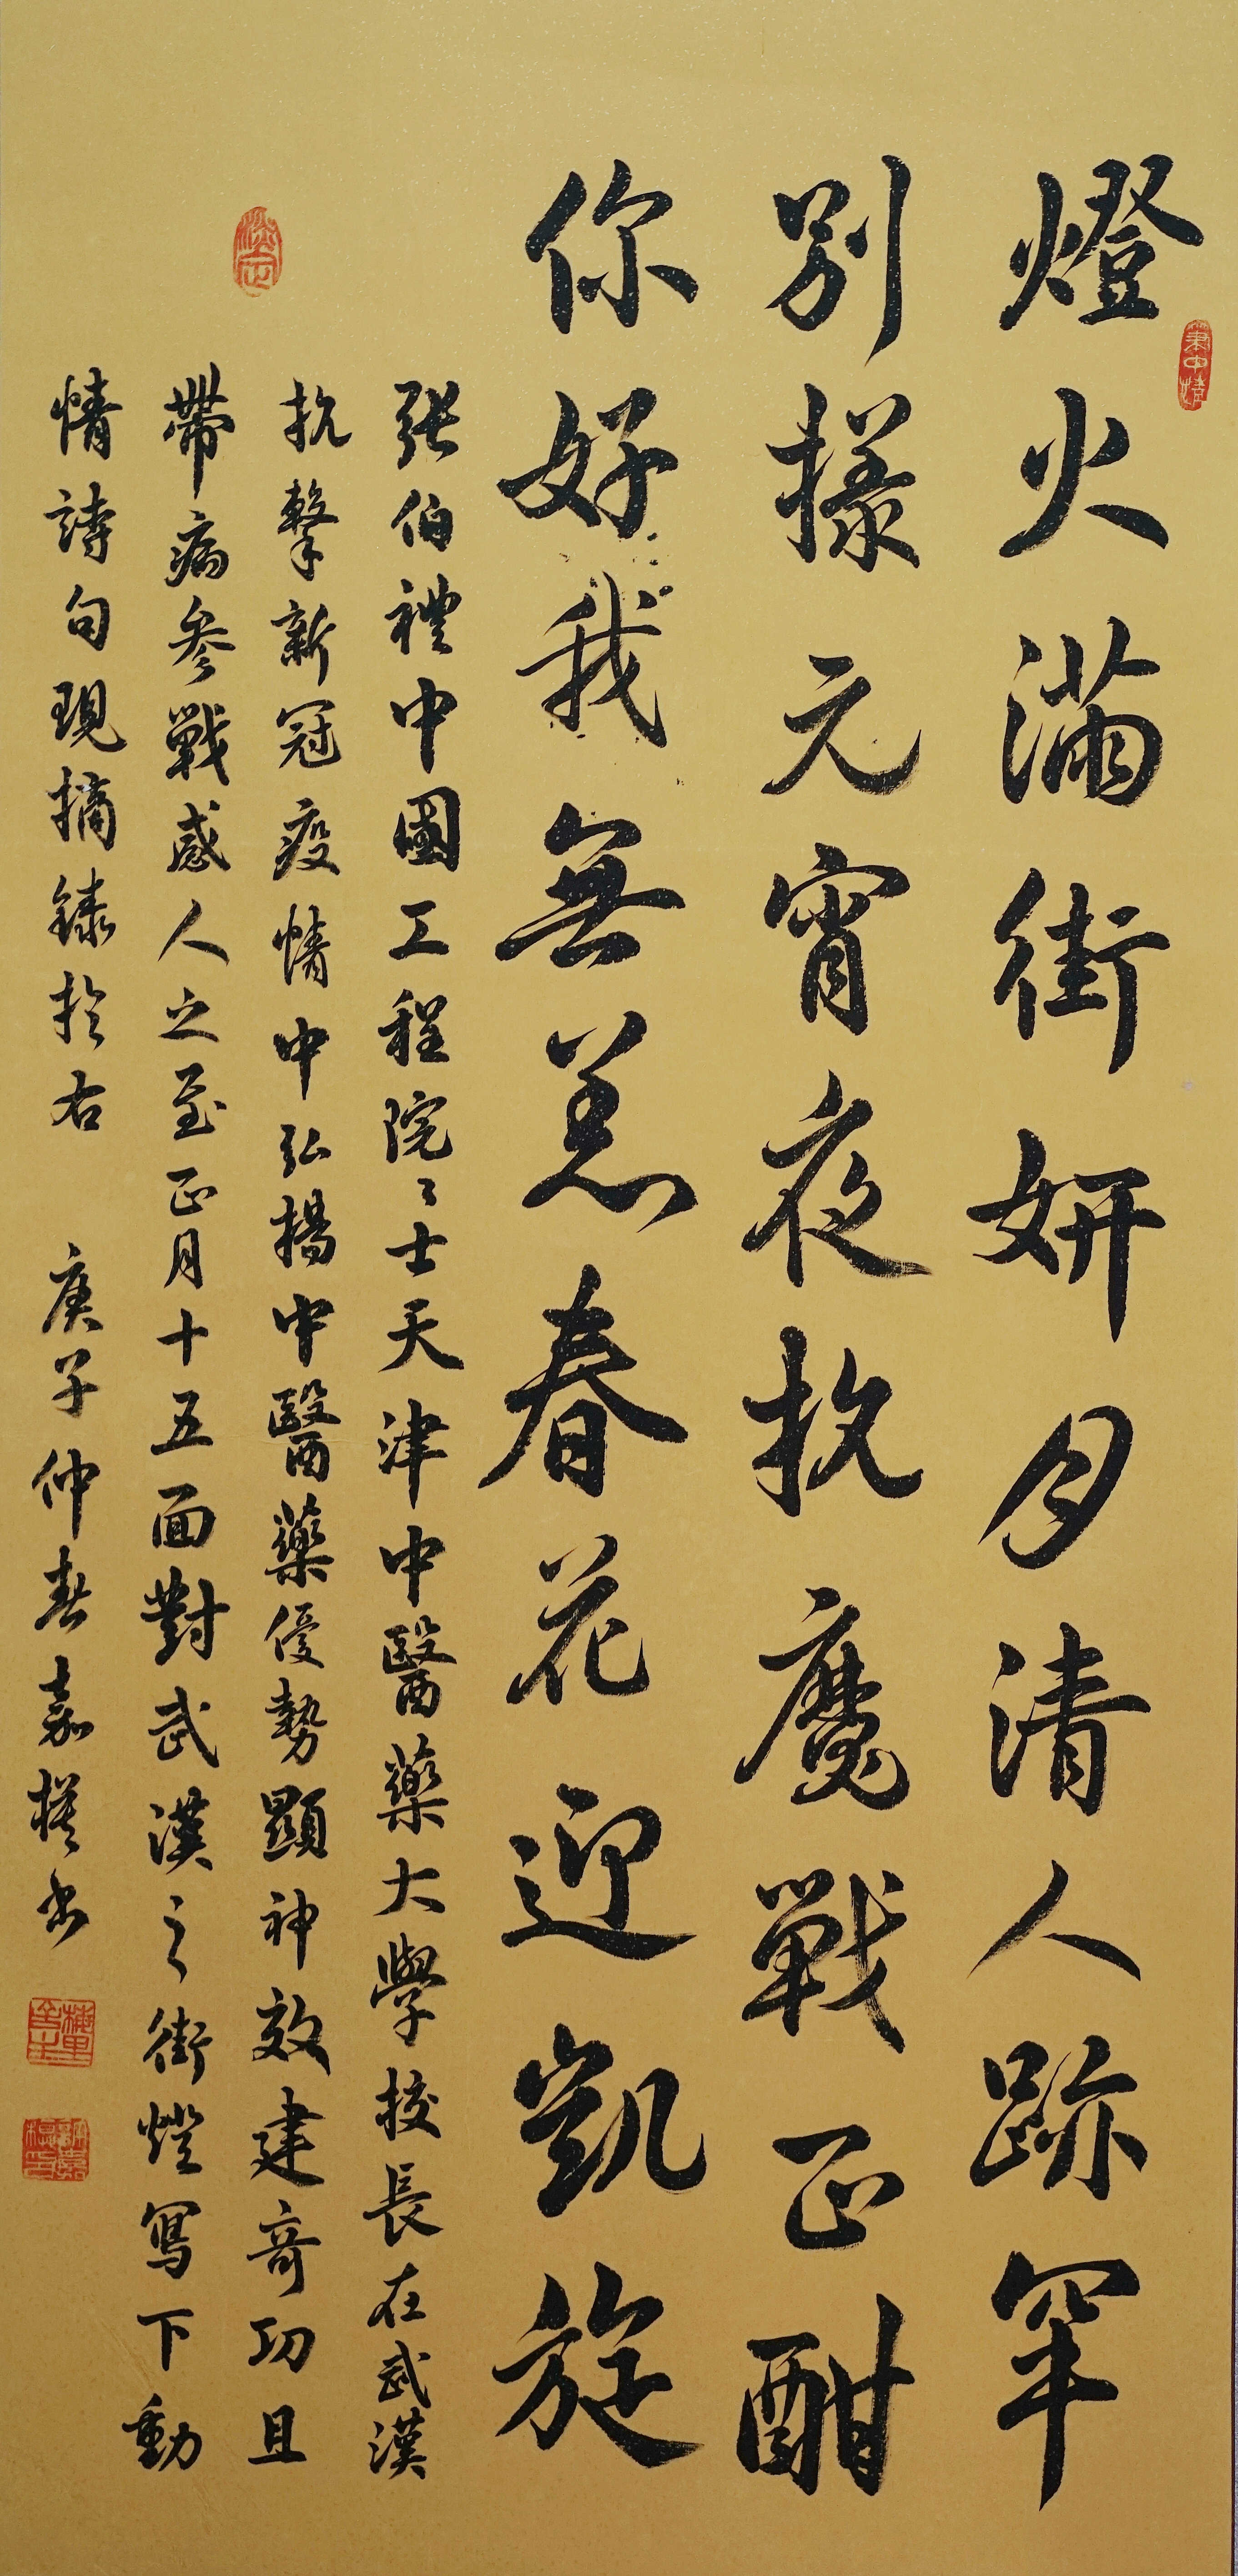 燈火滿街妍月清人跡罕
別樣元宵夜抗魔戰正酣
你好我無恙春花迎凱旋
張伯禮中國工程院々士天津中醫藥大學校長在武漢
抗擊新冠疫情中弘揚中醫藥優勢顯神效建奇功且
帶病參戰感人之至正月十五面對武漢之街燈寫下動
情詩句現摘錄於右 庚子仲春嘉模書